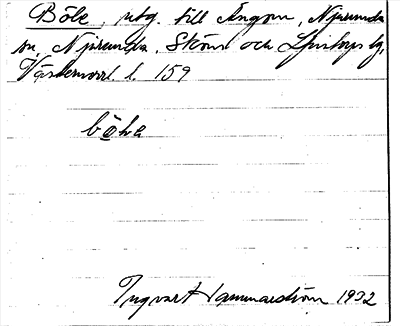 Böle, utg. till Ångom, Njurunda
sn, Njurunda, Sköns och Ljustorps tg,
Västernorrl. l. 159
böle
Ingvar Hammarström 1932